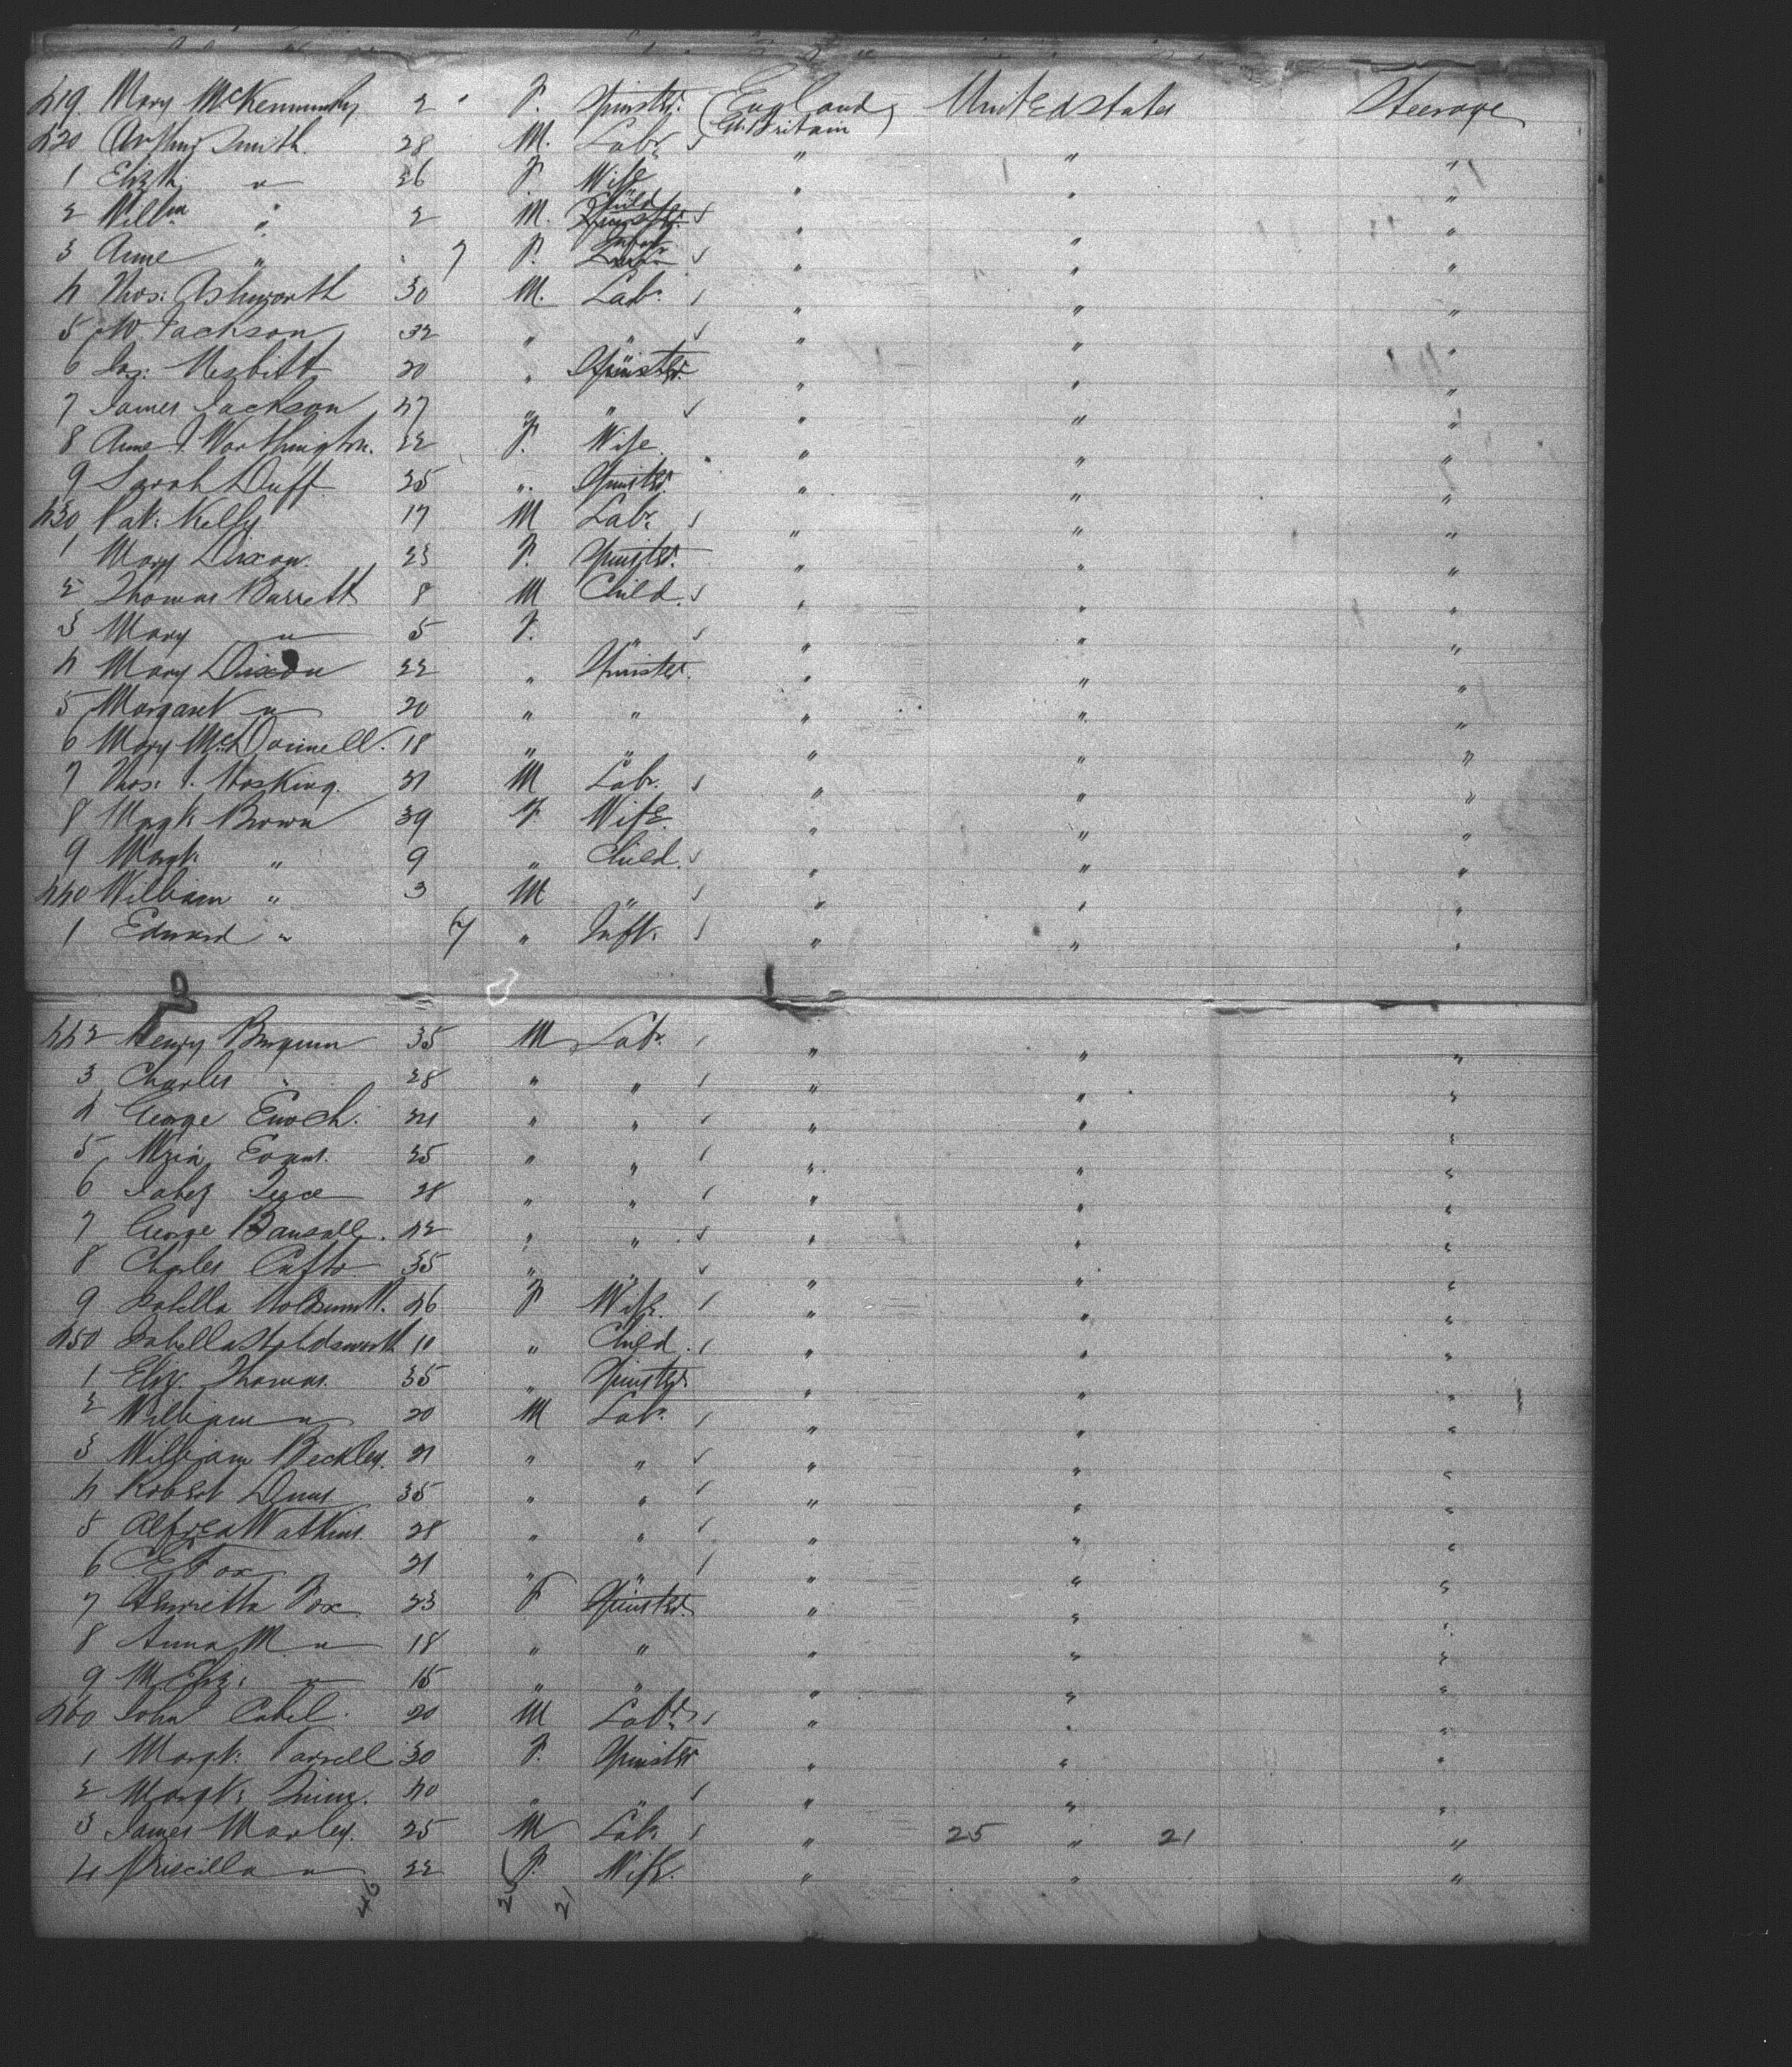 419 Mary 2 F. Spinstr. (England Gt. Britain) United States Steerage
420 Arthur Smith. 28 M. Labr. " " "
1 Elizth. " 26 F. Wife " " "
2 Willm. " 2 M. Child " " "
3 Anne " 7 F. Infant " " "
4 Thos: Ashworth 30 M. Labr. " " "
5 W. Jackson 32 " " " " "
6 Jas: Nesbitt 20 " Spinster. " " "
7 James Jackson 47 " " " " "
8 Anne J. Worthington. 22 F. Wife " " "
9 Sarah Duff 25 " Spinster. " " "
430 Pat: Kelly 17 M Labr. " " "
1 Mary Dixon. 23 F. Spinster. " " "
2 Thomas Barrett 8 M Child. " " "
3 Mary " 5 F. " " " "
4 Mary Dixon 22 " Spinster. " " "
5 Margaret " 20 " " " " "
6 Mary McDonnell. 18 " " " " "
7 Thos: J. Hosking. 31 M Labr. " " "
8 Margt. Brown 39 F Wife. " " "
9 Margt. " 9 " Child. " " "
440 William " 3 M " " " "
1 Edward " 7 " Inft. " " "
442 Henry 35 M Labr. " " "
3 Charles " 28 " " " " "
4 George Enoch. 21 " " " " "
5 Evans. 25 " " " " "
6 Jabez 28 " " " " "
7 George Bansall. 42 " " " " "
8 Charles 35 " " " " "
9 Isabella 46 F Wife. " " "
450 Isabella Holdsworth 10 " Child. " " "
1 Eliz. Thomas. 35 " Spinster " " "
2 William " 20 M Labr. " " "
3 William Beckley. 21 " " " " "
4 Robert 35 " " " " "
5 Alfred Watkins. 28 " " " " "
6 C. Fox 21 " " " " "
7 Henrietta Fox 23 F Spinster. " " "
8 Anna M " 18 " " " " "
9 M Eliz: " 15 " " " " "
460 John Cabel. 20 M Labr. " " "
1 Margt. Farrell 30 F. Spinster " " "
2 Margt. 40 " " " " "
3 James Morley. 25 M Labr " 25 " 21 "
4 Priscilla " 22 F. Wife. " " "
46 25 21